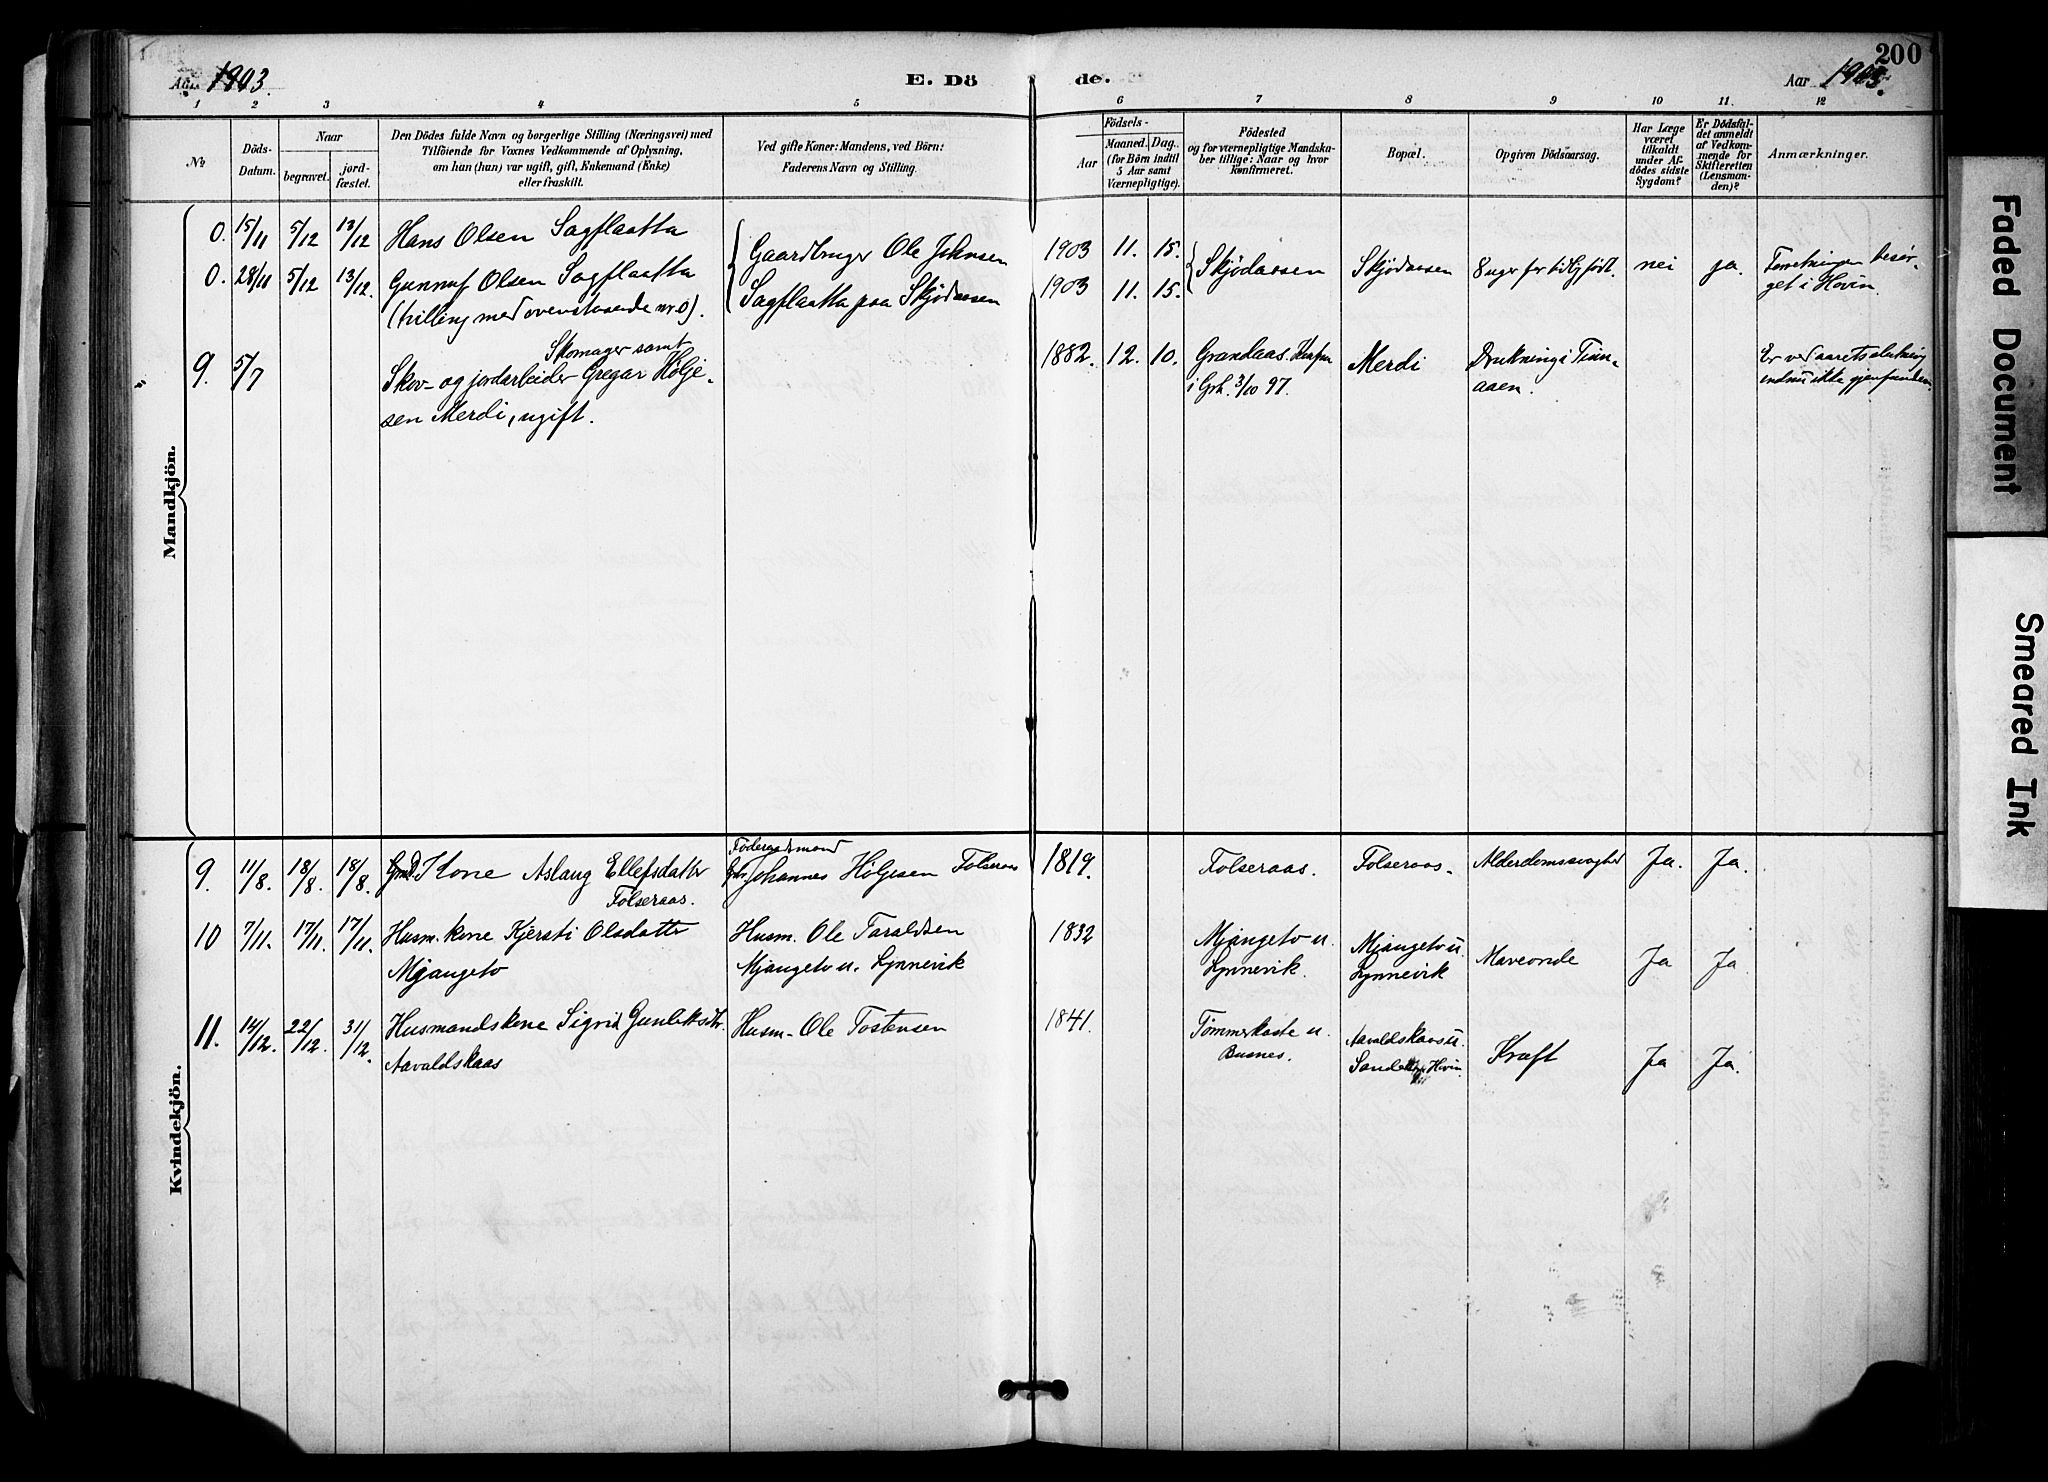 Aar 1903.
E. Döde.
Aar 1903.
200
1 2 3 4 5 6 7 8 9 10 11. 12
No
Döds-
Datum.
Naar
begravet.
jord-
fæstet.
Den Dödes fulde Navn og borgerlige Stilling (Næringsvei) med
Tilföiende for Voxnes Vedkommende af Oplysning,
om han (hun) var ugift, gift, Enkemand (Enke)
eller fraskilt.
Ved gifte Koner: Mandens, ved Börn:
Faderens Navn og Stilling.
Födsels-
Aar
Maaned. Dag.
(for Börn indtil
5 Aar samt
Værnepligtige).
Födested
og for værnepligtige Mandska-
ber tillige: Naar og hvor
konfirmeret.
Bopæl.
Opgiven Dödsaarsag.
Har Læge
været
tilkaldt
under Af-
dödes sidste
Sygdom?
Er Dödsfal-
det anmeldt
af Vedkom-
mende for
Skifteretten
(Lensman-
den)?
Anmærkninger.
Mandkjön.
0. 15/11 5/12 13/12 Hans Olsen Sagflaatta
Gaardbruger Ole Johnsen
1903 11. 15.
0. 28/11 5/12 13/12. Gunnuf Olsen Sagflaatta
(trilling med ovenstaaende nr. 0).
Sagflaatta paa Skjödaasen
1903 11. 15.
Skjödaasen Skjödaasen 8 uger for tidlig födt. nei ja.
Forretningen besör-
get i Hovin.
9. 5/7
Skomager samt
Skov- og jordarbeider Gregar Hölje-
sen Merdi, ugift.
1882. 12. 10. Grandaas.
i Grh. 3/10 97.
Merdi
Drukning i Tinn-
aaen.
Er ved aarets slutning
endnu ikke gjenfunden
Kvindekjön.
9. 11/8. 18/8. 18/8. Kone Aslaug Ellefsdatter
Folseraas.
Föderaadsmand
Johannes Höljesen Folseraas
1819. Folseraas. Folseraas. Alderdomssvaghed Ja. Ja.
10 7/11. 17/11. 17/11. Husm. kone Kjersti Olsdatter
Mjangeto
Husm. Ole Taraldsen
Mjangeto u. Lynnevik
1832
Mjangeto u.
Lynnevik.
Mjangeto u
Lynnevik
Maveonde Ja Ja
11. 14/12. 22/12. 31/12. Husmandskone Sigrid Gunleiksdtr.
Aavaldskaas
Husm. Ole Tostensen
1841.
Tömmerkaste u.
Busnes.
Aavaldskaas u.
Sande Hovin
Kræft Ja Ja.
Faded Document
Smeared Ink